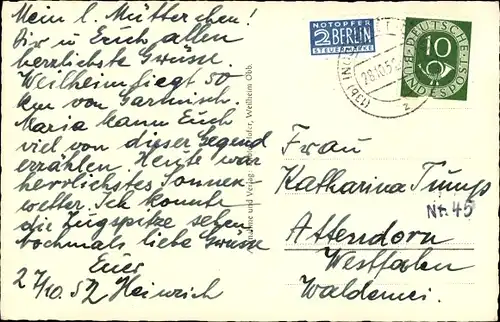 Mein l. Mütterchen!
Dir u. Euch allen
herzlichste Grüsse.
Weilheim liegt 50
km von Garmisch.
Maria kann Euch
viel von dieser Gegend
erzählen Heute war
herrlichstes Sonnen
wetter. Ich konnte
die Zugspitze sehen
nochmals liebe Grüsse
Euer
27/10. 52 Heinrich
und Verlag: Weilheim Obb.
NOTOPFER
2 BERLIN
STEUERMARKE
28.10.52
DEUTSCHE
BUNDESPOST
10
Frau
Katharina Tump
Nr. 45
Attendorn
Westfalen
Waldenei.